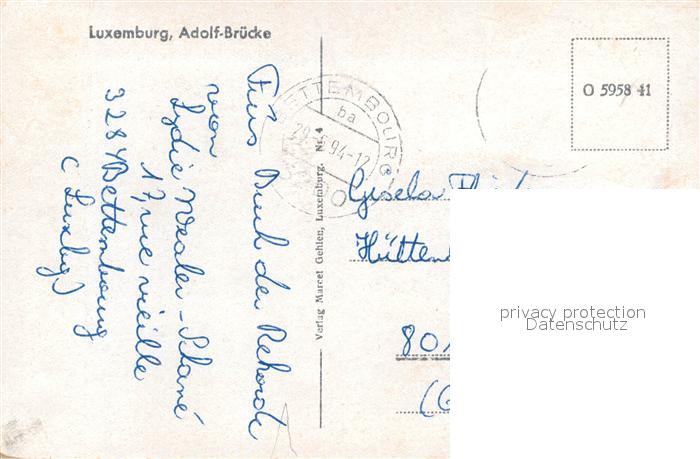 Luxemburg, Adolf-Brücke
O 5958 41
BETTEMBOURG
ba
94-12
Verlag Marcel Gehlen, Luxemburg. Nr. 4
Fürs Buch der Rekorde
von
Lydie
17, rue vieille
3284 Bettembourg
( Luxbg)
Gisela
80
privacy protection
Datenschutz